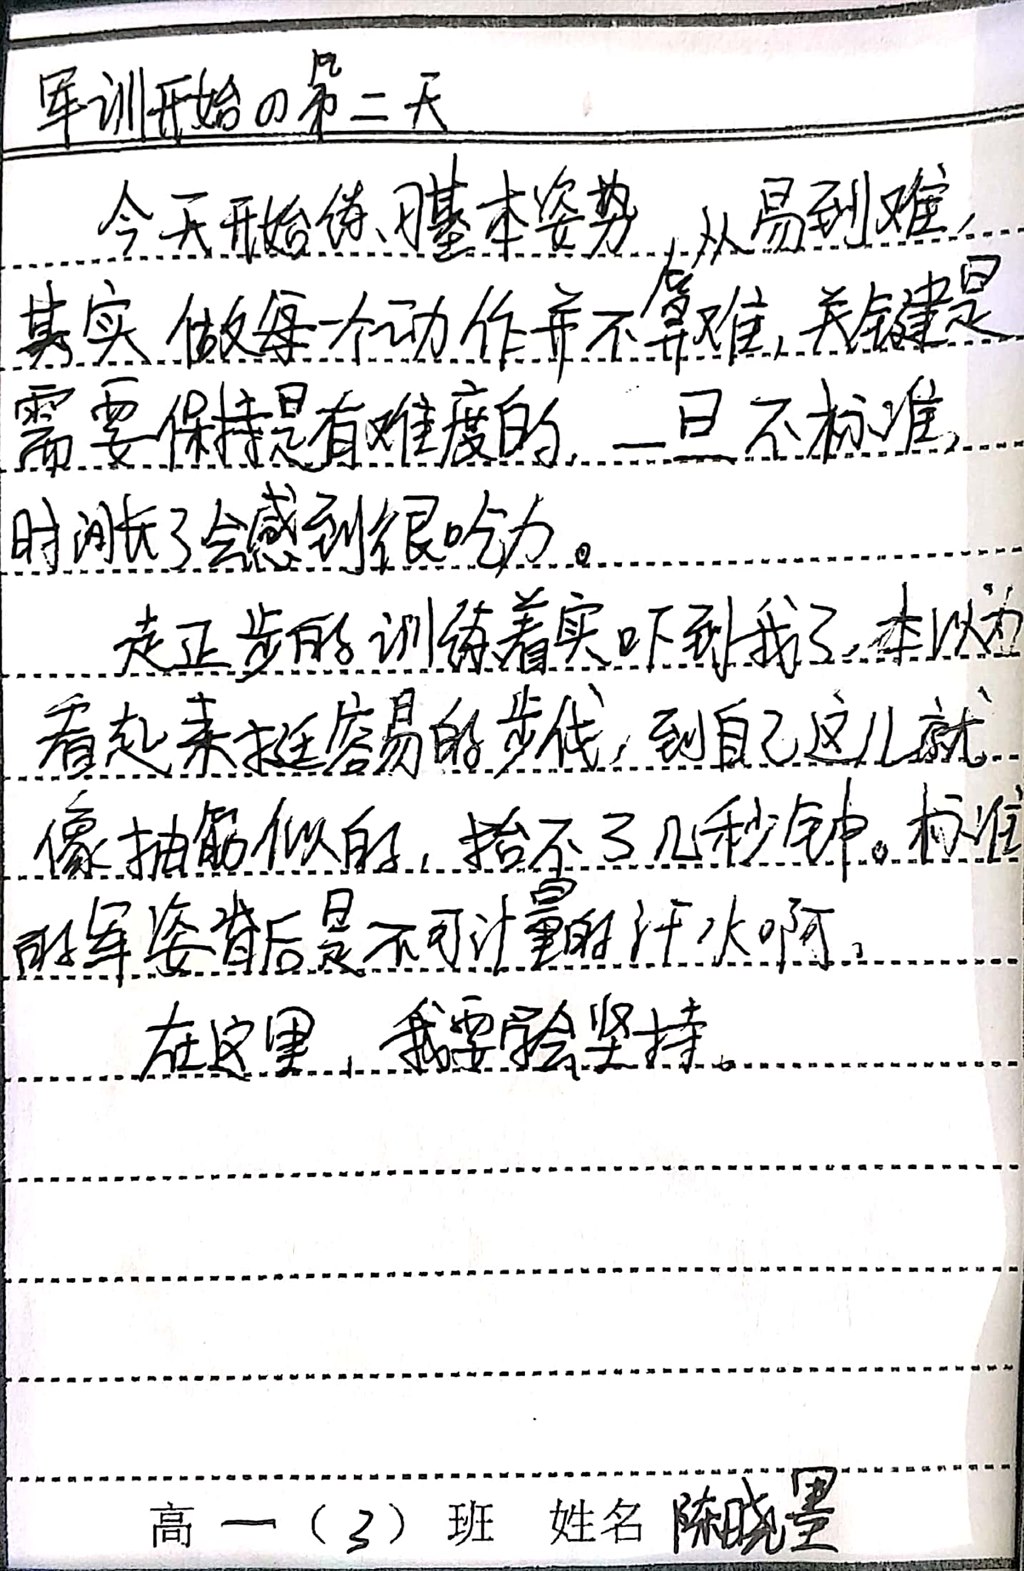 军训开始の第二天
今天开始练习基本姿势,从易到难,
其实做每一个动作并不算难,关键是
需要保持是有难度的,一旦不标准,
时间长了会感到很吃力。
走正步的训练着实吓到我了,本以为
看起来挺容易的步伐,到自己这儿就
像抽筋似的,抬不了几秒钟。标准
的军姿背后是不可计量的汗水啊,
在这里,我要学会坚持。
高一(3)班 姓名 陈晓墨